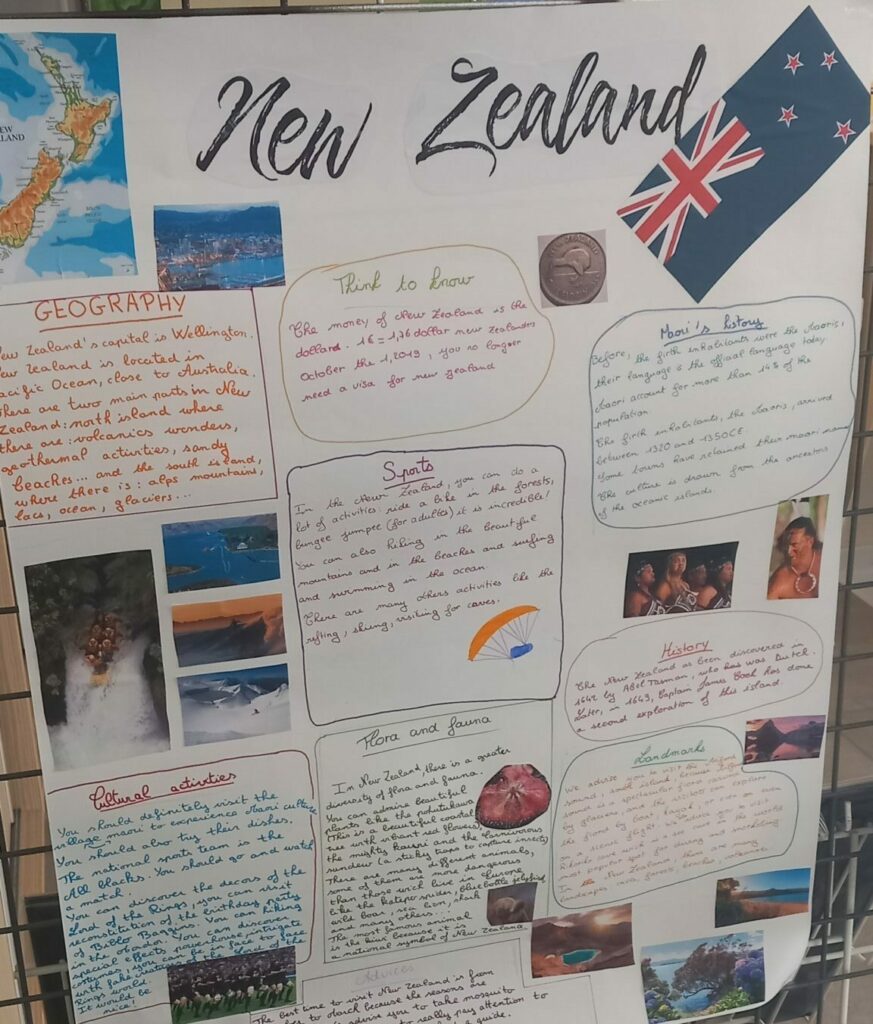 New Zealand
NEW
ZEALAND
GEOGRAPHY
New Zealand's capital is Wellington.
New Zealand is located in
Pacific Ocean, close to Australia.
There are two main parts in New
Zealand: north island where
there are: volcanics wonders,
geothermal activities, sandy
beaches... and the south island,
where there is: alps mountains,
lacs, ocean, glaciers...
Think to know
The money of New Zealand is the
dollard. 1€ = 1,76 dollar new zealander
October the 1,2019, you no longer
need a visa for new zealand
Maori's history
Before, the firth inhabitants were the Maoris,
their language is the official language today
Maori account for more than 14% of the
population.
The firth inhabitants, the Maoris, arrived
between 1320 and 1350CE.
Some towns have retained their maori name
The culture is drawn from the ancestors
of the oceanic islands
Sports
In the New Zealand, you can do a
lot of activities: ride a bike in the forests,
bungee jumpee (for adultes) it is incredible!
You can also hiking in the beautiful
mountains and in the beaches and surfing
and swimming in the ocean
There are many others activities like the
rafting, skiing, visiting for caves.
History
The New Zealand as been discovered in
1642 by Abel Tasman, who has was Dutch.
Later, in 1643, Captain James Cook has done
a second exploration of this island.
Cultural activities
You should definitely visit the
village maori to experience Maori culture
You should also try their dishes.
The national sports team is the
All blacks. You should go and watch
a match.
You can discover the decors of the
Lord of the Rings, you can visit
reconstitution of the birthday party
of Bilbo Baggins. You can hiking
in the
special effects, powerhouse intrigate
costumes, you can be face to face
with fake creatures of the Lord of the
Rings world.
It would be
nice!
Flora and fauna
In New Zealand, there is a greater
diversity of flora and fauna.
You can admire beautiful
plants like the pohutukawa
(This is a beautiful coastal
tree with vibrant red flowers)
the mighty kauri and the carnivorous
sundew (a sticky trips to capture insects)
There are many different animals,
some of them are more dangerous,
than those wich live in Europe
like the Katepo spider, blue bottle jellyfish
wild boar, sea lion, shark
and many others...
The most famous animal
is the kiwi because it is
a national symbol of New Zealand.
Landmarks
We advise you to visit the
sound, south island, because
sound is a spectacular fiord carved
by glaciers, and the visitors can explore
the fiord by boat, kayak, or even
a scenic flight. We advise you to visit
most popular spot for diving and snorkling
In the New Zealand, there are many
landscapes:
Advices
The best time to visit New Zealand is from
to March because the seasons are
advise you to take mosquito
to really pay attention to
guide.